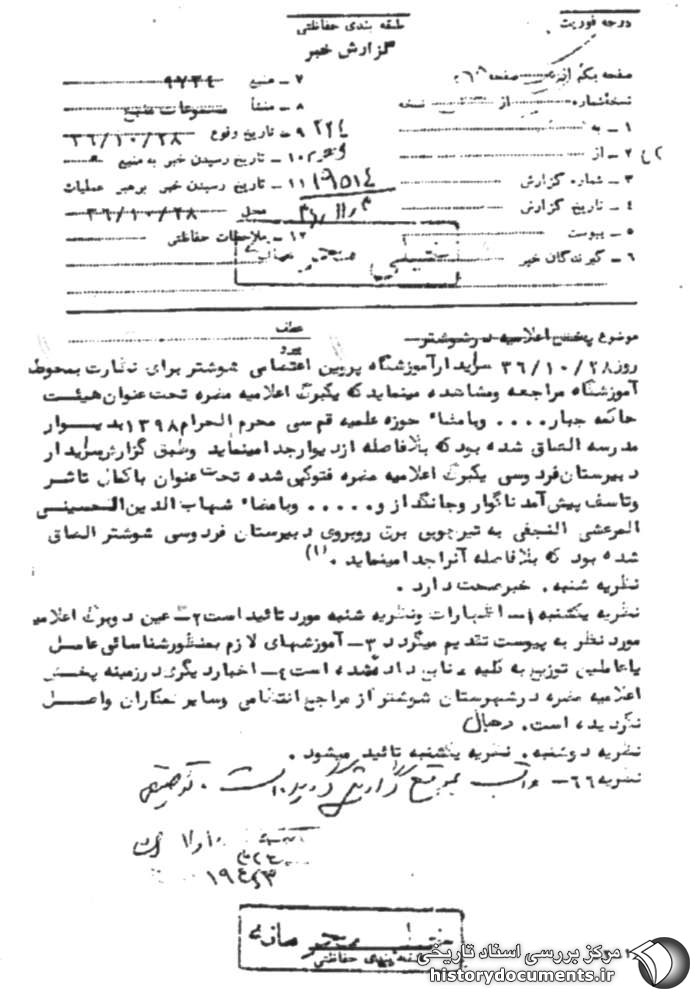 درجه فوریت
طبقه بندی حفاظتی
گزارش خبر
صفحه یکم از صفحه
نسخه شماره از نسخه
۱ ـ به
۲ ـ از
۳ ـ شماره گزارش
۴ ـ تاریخ گزارش
۵ ـ پیوست
۶ ـ گیرندگان خبر
۷ ـ منبع ۹۷۳۴
۸ ـ منشأ مسموعات منبع
۹ ـ تاریخ وقوع ۳۶/۱۰/۲۸
۱۰ ـ تاریخ رسیدن خبر به منبع
۱۱ ـ تاریخ رسیدن خبر برهبر عملیات
محل ۳۶/۱۰/۲۸
۱۲ ـ ملاحظات حفاظتی
خیلی محرمانه
موضوع پخش اعلامیه در شوشتر
عطف
پیرو
روز ۳۶/۱۰/۲۸ سرایدار آموزشگاه پروین اعتصامی شوشتر برای نظارت بمحوطه
آموزشگاه مراجعه ومشاهده مینماید که یکبرگ اعلامیه مضره تحت عنوان هیئت
حاکمه جبار .... وبامضاء حوزه علمیه قم سی محرم الحرام ۱۳۹۸ بدیوار
مدرسه الصاق شده بود که بلافاصله ازدیوار جدا مینماید وطبق گزارش سرایدار
دبیرستان فردوسی یکبرگ اعلامیه مضره فتوکپی شده تحت عنوان باکمال تاثر
وتاسف پیش آمد ناگوار وجانگداز و ..... وبامضاء شهاب الدین الحسینی
المرعشی النجفی به تیرچوبی برق روبروی دبیرستان فردوسی شوشتر الصاق
شده بود که بلافاصله آنرا جدا مینماید . (۱)
نظریه شنبه . خبر صحت دارد .
نظریه یکشنبه ۱ـ اظهارات ونظریه شنبه مورد تائید است ۲ـ عین دوبرگ اعلامیه
مورد نظر به پیوست تقدیم میگردد ۳ـ آموزشهای لازم بمنظور شناسائی عامل
یا عاملین توزیع به کلیه منابع داده شده است ۴ـ اخبار دیگری در زمینه پخش
اعلامیه مضره در شهرستان شوشتر از مراجع انتظامی وسایر همکاران واصل
نگردیده است .
نظریه دوشنبه . نظریه یکشنبه تائید میشود .
نظریه ۶۶ـ مراتب بموقع گزارش گردیده است .
خیلی محرمانه
طبقه بندی حفاظتی
مرکز بررسی اسناد تاریخی
historydocuments.ir